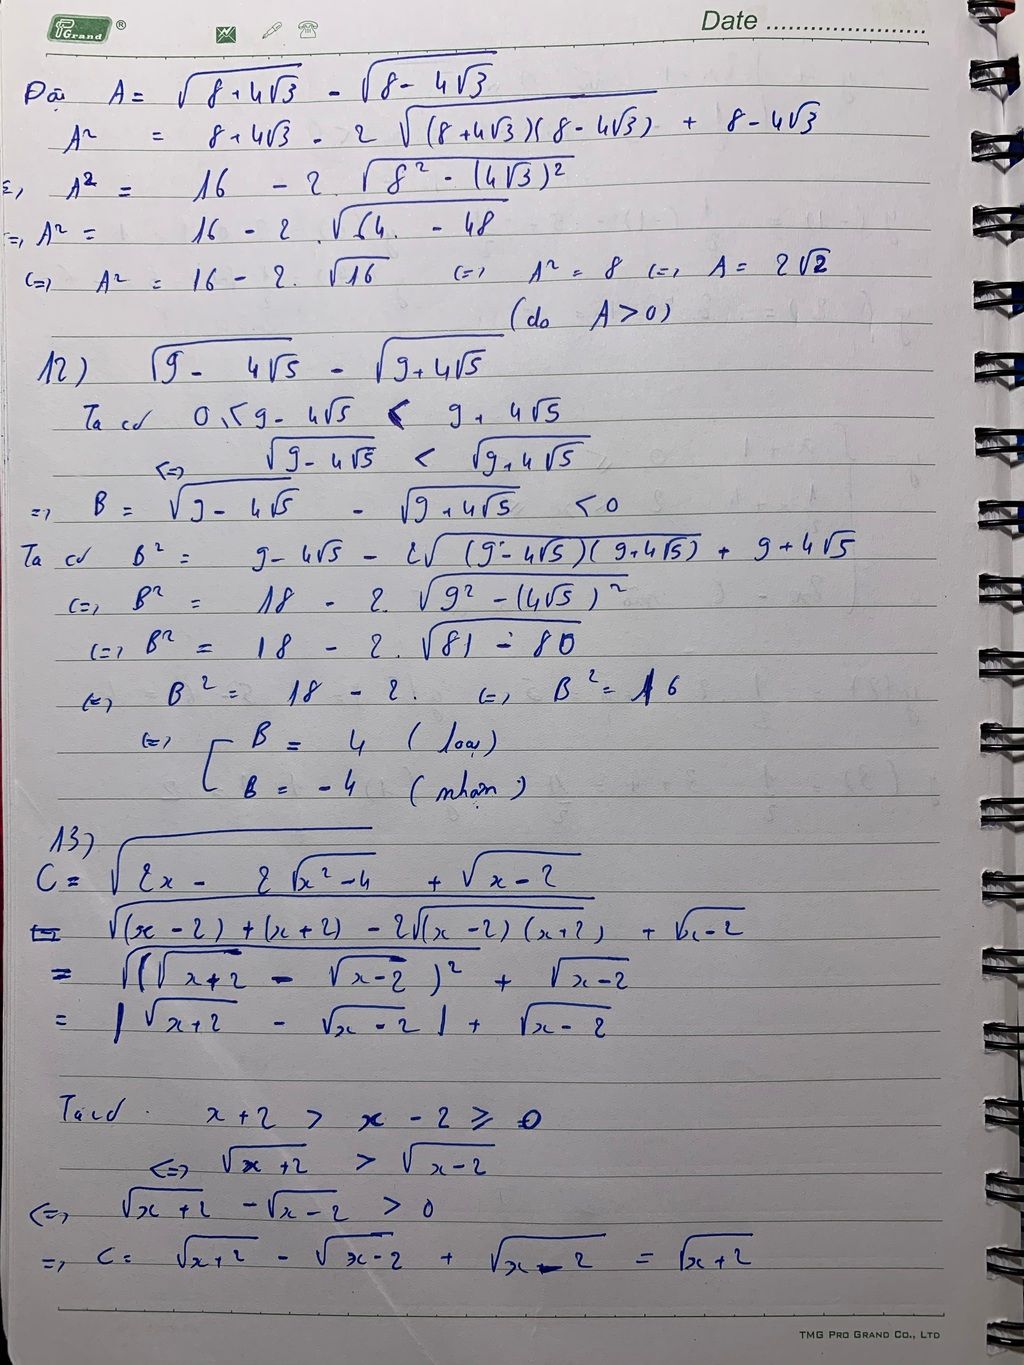 PGrand ®
Date ........................
Đặt A = √(8+4√3) - √(8-4√3)
A² = 8+4√3 - 2√((8+4√3)(8-4√3)) + 8-4√3
A² = 16 - 2.√(8² - (4√3)²)
⇔ A² = 16 - 2.√(64 - 48)
⇔ A² = 16 - 2.√16 ⇔ A² = 8 ⇔ A = 2√2
(do A > 0)
12) √(9 - 4√5) - √(9+4√5)
Ta có 0 < 9 - 4√5 < 9 + 4√5
⇔ √(9 - 4√5) < √(9+4√5)
⇒ B = √(9 - 4√5) - √(9+4√5) < 0
Ta có B² = 9-4√5 - 2√((9-4√5)(9+4√5)) + 9+4√5
⇔ B² = 18 - 2.√(9² - (4√5)²)
⇔ B² = 18 - 2.√(81 - 80)
⇔ B² = 18 - 2. ⇔ B² = 16
⇔ [ B = 4 (loại)
B = -4 (nhận)
13)
C = √(2x - 2√(x²-4)) + √(x-2)
= √((x-2)+(x+2) - 2√((x-2)(x+2))) + √(x-2)
= √((√(x+2) - √(x-2))²) + √(x-2)
= |√(x+2) - √(x-2)| + √(x-2)
Ta có x+2 > x-2 ≥ 0
⇔ √(x+2) > √(x-2)
⇔ √(x+2) - √(x-2) > 0
⇒ C = √(x+2) - √(x-2) + √(x-2) = √(x+2)
TMG PRO GRAND CO., LTD